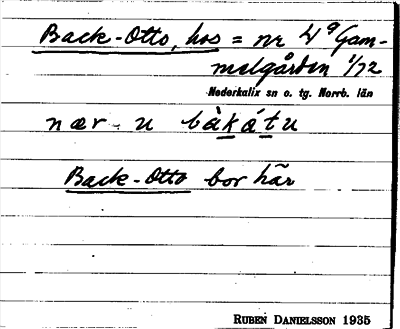 Back-Otto, hos = nr 4⁹ Gam-
melgården 1/72
Nederkalix sn o. tg. Norrb. län
nær u bàkátu
Back-Otto bor här
RUBEN DANIELSSON 1935